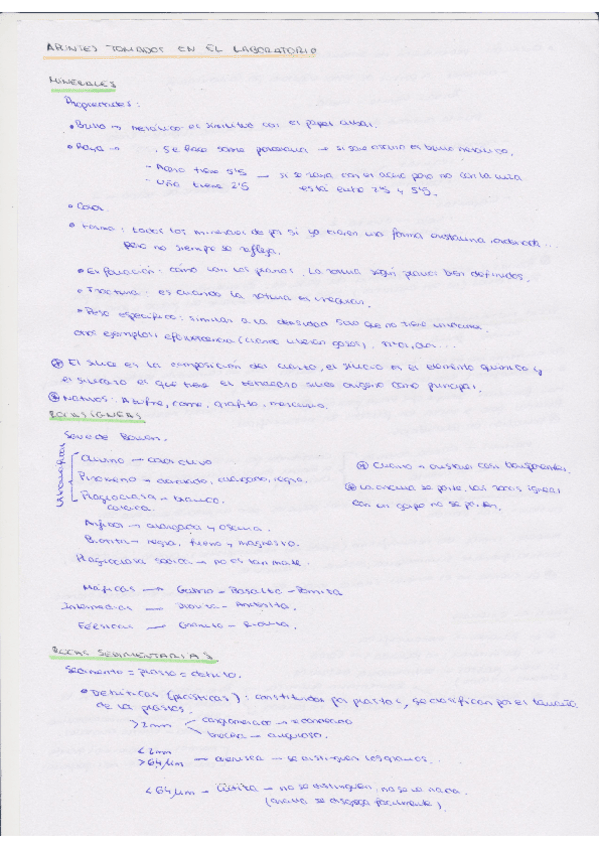 APUNTES TOMADOS EN EL LABORATORIO
MINERALES
Propiedades:
Brillo → metálico es similar con el papel
Raya → Se hace sobre porcelana → si sale oscuro el brillo metálico.
Acero tiene 5'5 → si se raya con el acero pero no con la uña
Uña tiene 2'5 está entre 2'5 y 5'5.
Color
Forma: todos los minerales de por sí ya tienen una forma cristalina ordenada...
pero no siempre se refleja.
Exfoliación: cómo son los planos. La rotura según planos bien definidos.
Fractura: es cuando la rotura es irregular.
Peso específico: similar a la densidad solo que no tiene
otros ejemplos: efervescencia (cuando liberan gases),
El sílice es la composición del cuarzo, el silicio es el elemento químico y
el silicato es que tiene el tetraedro silicio oxígeno como principal.
Nativos: Azufre, grafito, mercurio.
ROCAS ÍGNEAS
Serie de Bowen.
Ultramáficas
Olivino → color olivo
Piroxeno → negra.
Plagioclasa → blanco.
cálcica
Anfíbol → alargada y oscura.
Biotita → negra, hierro y magnesio.
Plagioclasa sódica → no es tan mate.
Cuarzo → cristales casi transparentes.
La arenisca se parte, las rocas ígneas
con un golpe no se parten.
Máficas → Gabro - Basalto
Intermedias → Diorita - Andesita.
Félsicas → Granito - Riolita.
ROCAS SEDIMENTARIAS
Sedimento = clasto = detrito.
Detríticas (clásticas): constituidas por clastos, se clasifican por el tamaño
de los clastos.
>2mm conglomerado → redondeado
brecha → anguloso.
<2mm
>64μm → arenisca → se distinguen los granos.
<64μm → Lutita → no se distinguen, no se ve nada.
(arcilla se disgrega fácilmente).